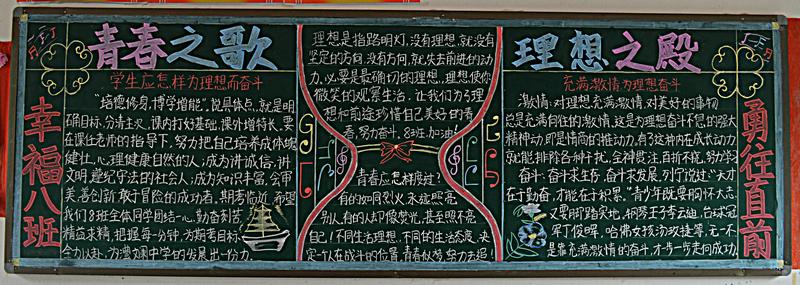 青春之歌
学生应怎样为理想而奋斗
幸福八班
"培德修身,博学增能",说具体点,就是明
确目标,分清主次,课内打好基础,课外增特长,要
在课任老师的指导下,努力把自己培养成体魄
健壮,心理健康自然的人;成为讲诚信,讲
文明,遵纪守法的社会人;成为知识丰富,会审
美,善创新,敢于冒险的成功者,期考临近,希望
我们8班全体同学团结一心,勤奋刻苦
精益求精,把握每一分钟,为期考目标
全力以赴,为澧斓中学的发展出一份力.
理想是指路明灯,没有理想,就没有
坚定的方向,没有方向,就失去前进的动
力,必要是最确切的理想,理想使你
微笑的观察生活,让我们为了理
想和前途珍惜自己美好的青
春,努力奋斗,8班,加油!
青春应怎样度过?
有的如同烈火,永远照亮
别人,有的人却像荧光,甚至照不亮
自己!不同生活理想,不同的生活态度,决
定一个人在战斗的位置,青春似梦,努力去追!
理想之殿
充满激情为理想奋斗
激情,对理想充满激情,对美好的事物
总是充满向往的激情,这是为理想奋斗不息的强大
精神动力,即是情商的推动力,有了这种内在成长动力
就能排除各种干扰,全神贯注,百折不挠,努力学习
奋斗,奋斗求生存,奋斗求发展,列宁说过:"天才
在于勤奋,才能在于积累."青少年既要胸怀大志
又要脚踏实地,钢琴王子李云迪,台球冠
军丁俊晖,哈佛女孩汤玫捷等,无一不
是靠充满激情的奋斗,才步一步走向成功
勇往直前